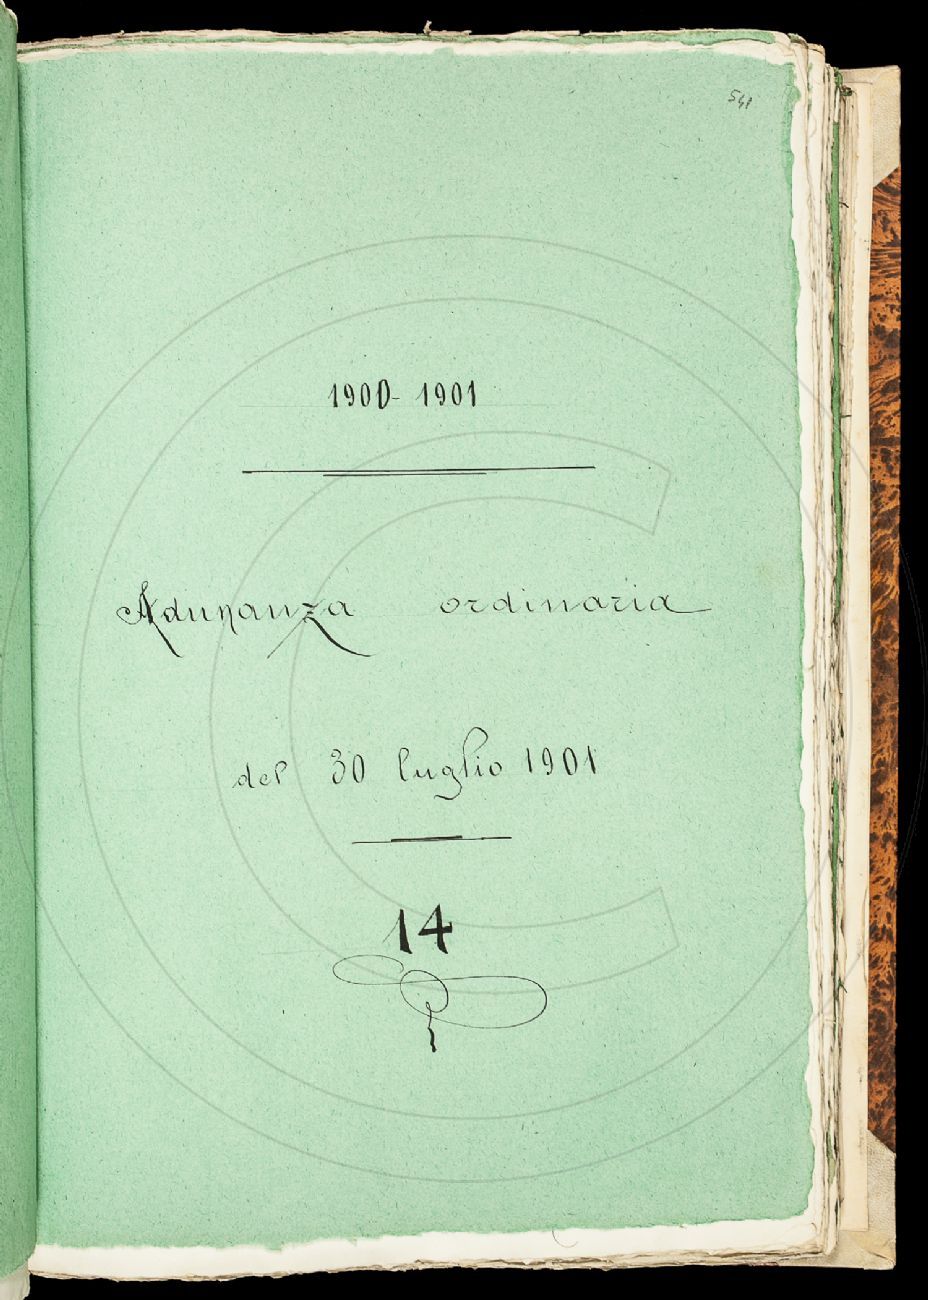 541
1900-1901
Adunanza ordinaria
del 30 luglio 1901
14